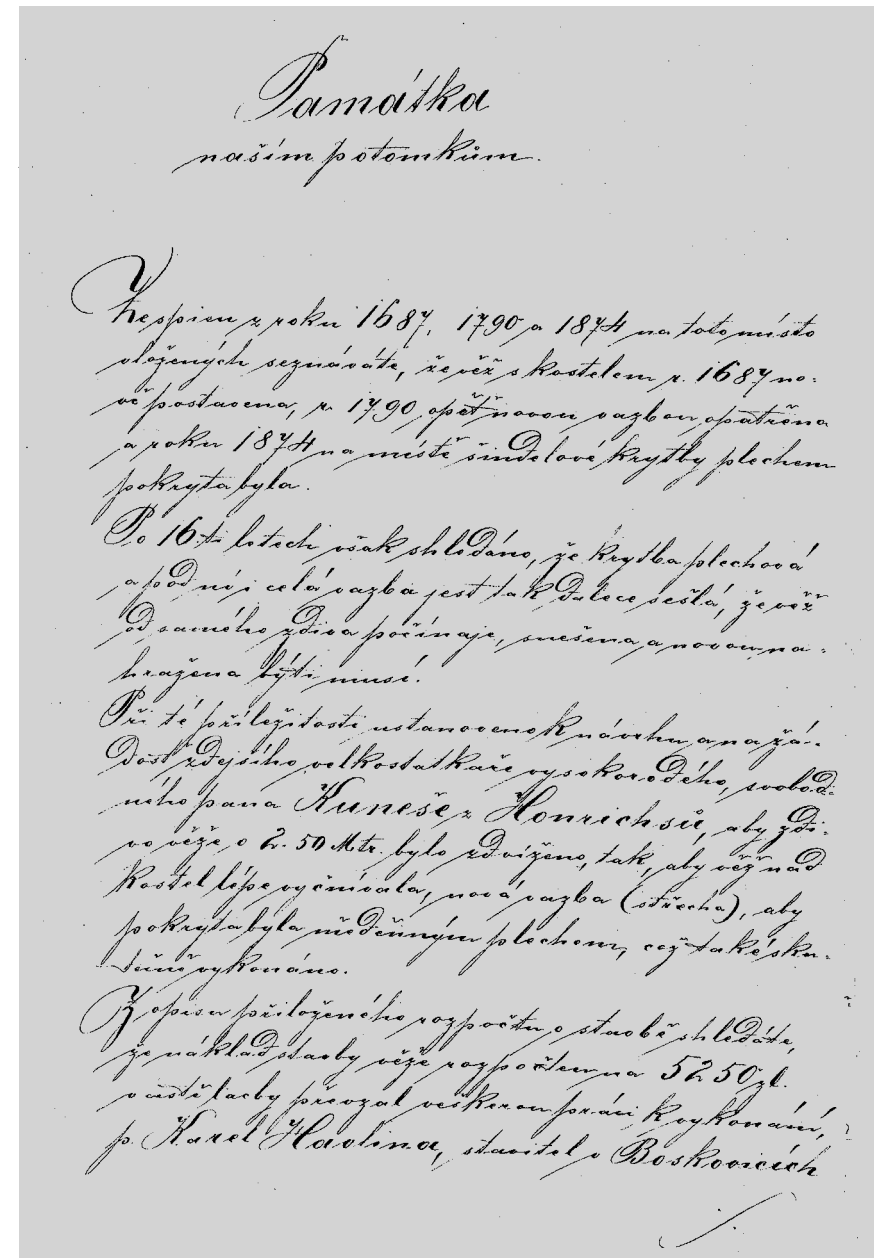 Památka
našim potomkům.
Ze spisu z roku 1687, 1790 a 1874 na toto místo
vložených seznáváte, že věž s kostelem r. 1687 no-
vě postavena, r. 1790 opět novou vazbou opatřena
a roku 1874 na místě šindelové krytby plechem
pokryta byla.
Po 16ti letech však shledáno, že krytba plechová
a pod ní i celá vazba jest tak dalece sešlá, že věž
od samého zdiva počínaje, snešena a novou na-
hražena býti musí.
Při té příležitosti ustanoveno k návrhu a na žá-
dost zdejšího velkostatkáře vysokorodého, svobod-
ného pana Kuneše z Honrichsů, aby zdi-
vo věže o 2.50 Mtr. bylo zdviženo, tak, aby věž nad
kostel lépe vyčnívala, nová vazba (střecha), aby
pokryta byla měděnným plechem, což také sku-
tečně vykonáno.
Z opisu přiloženého rozpočtu o stavbě shledáte,
že náklad stavby věže rozpočten na 5250 zl.
převzal veškerou práci k vykonání,
p. Karel Havlina, stavitel v Boskovicích